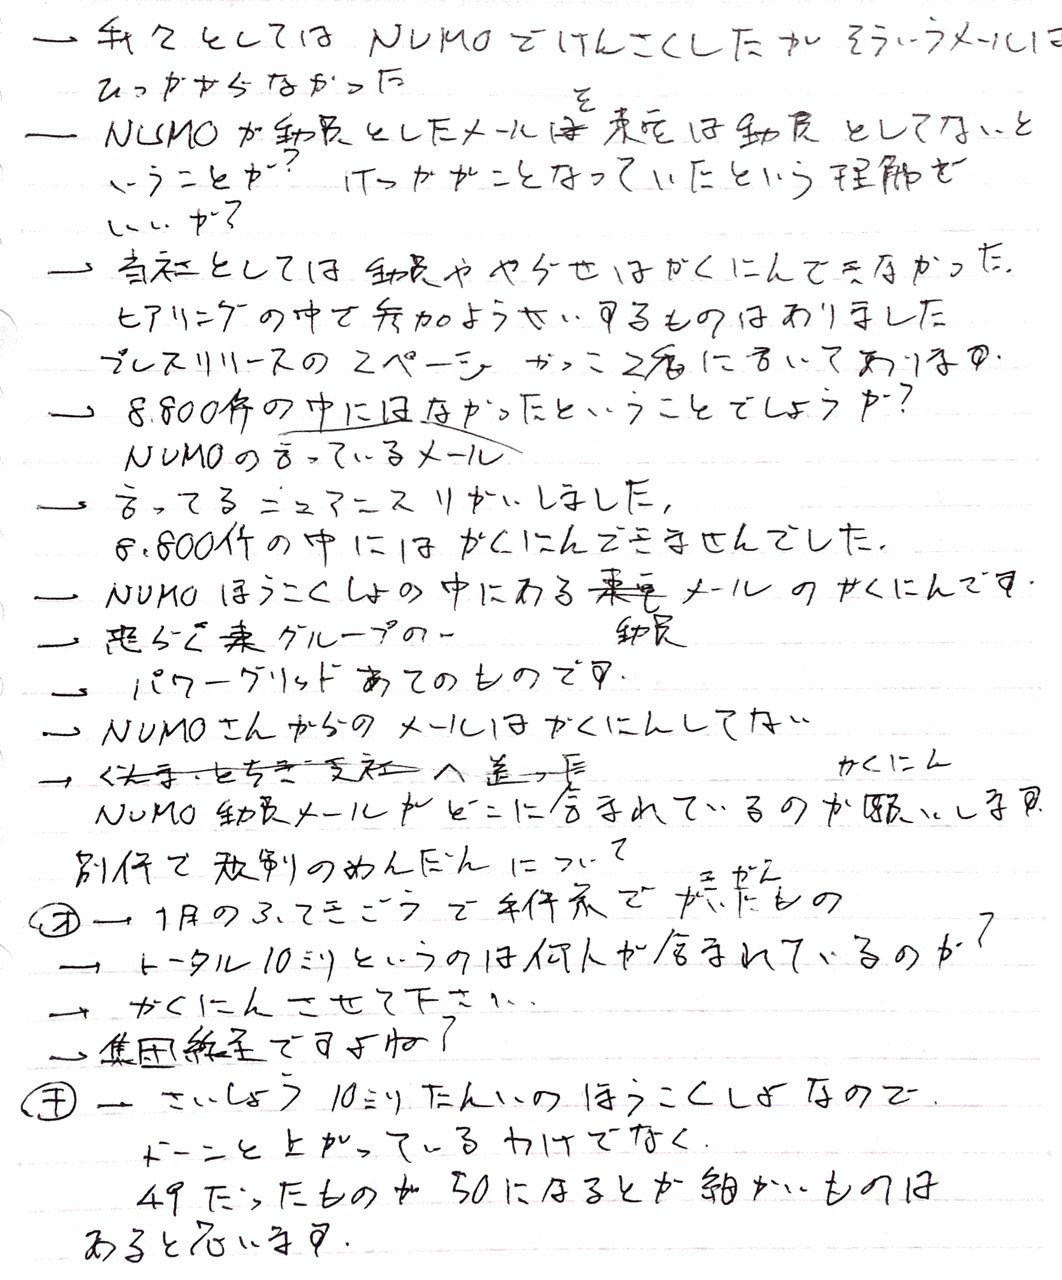 → 我々としては NUMOでけんさくしたが そういうメールは
ひっかからなかった
― NUMOが動員としたメールを 東電は動員としてないと
いうことか? けっかがことなっていたという理解で
いいか?
→ 当社としては動員ややらせはかくにんできなかった.
ヒアリングの中で参加ようせいするものはありました
プレスリリースの2ページ かっこ2番に書いてあります.
→ 8.800件の中にはなかったということでしょうか?
NUMOの言っているメール
→ 言ってるニュアンスりかいしました,
8.800件の中にはかくにんできませんでした.
→ NUMOほうこくしょの中にある 動員 メールのかくにんです.
→ 恐らく東グループの―
→ パワーグリッドあてのものです.
→ NUMOさんからのメールはかくにんしてない
→ ぐんま・とちぎ支社へ送った
NUMO動員メールがどこに含まれているのか かくにん 願いします.
別件で 規制のめんだんについて
オ → 1月のふてきごうで 事件 で ごがん
→ トータル10ミリというのは何人が含まれているのか?
→ かくにんさせて下さい.
→ 集団線量ですよね?
モ → さいしょう10ミリたんいのほうこくしょなので.
ドーンと上がっているわけでなく.
49だったものが50になるとか細かいものは
あると思います.